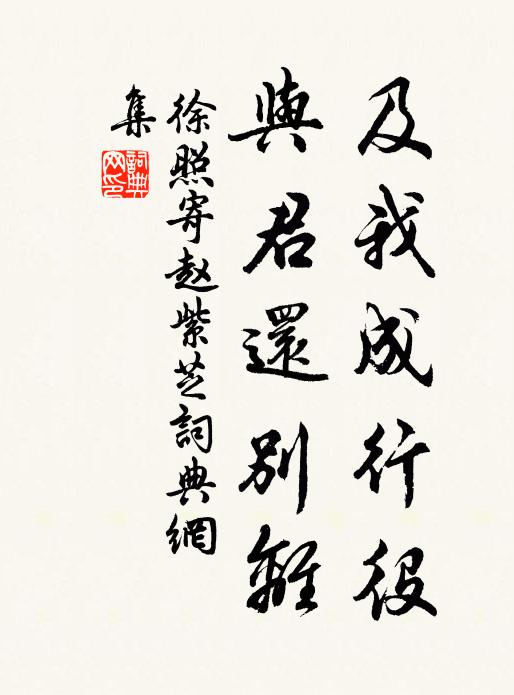 及我成行役
與君還別離
徐照寄赵紫芝詞典網
集
詞典
网印